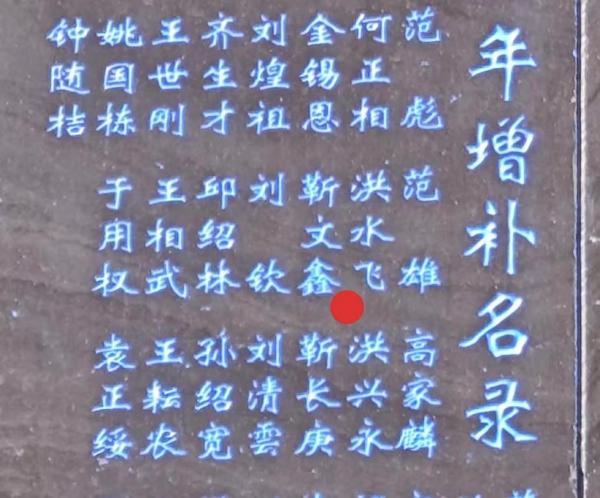 年增补名录
范彪 范雄 高家麟
何正相 洪水飞 洪兴永
金锡恩 靳文鑫 靳长庚
刘煌祖 刘钦 刘清雲
齐生才 邱绍林 孙绍宽
王世刚 王相武 王耘农
姚国栋 于用权 袁正绥
钟随桔